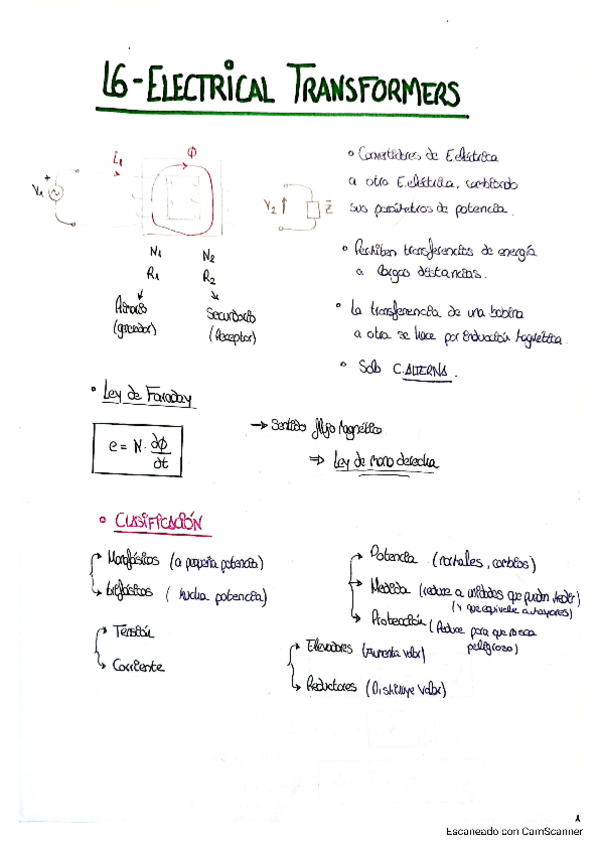 L6-ELECTRICAL TRANSFORMERS
i1
Φ
V1
V2
Z
N1
N2
R1
R2
Primario
Secundario
(generador)
(Receptor)
• Convertidores de E.eléctrica
a otra E.eléctrica, cambiando
sus parámetros de potencia.
• Permiten transferencias de energía
a largas distancias.
• La transferencia de una bobina
a otra se hace por inducción magnética.
• Solo C.ALTERNA.
• Ley de Faraday
e = N · dΦ/dt
→ Sentido flujo magnético
⇒ Ley de mano derecha
• CLASIFICACIÓN
Monofásicos (a pequeña potencia)
trifásicos (mucha potencia)
Tensión
Corriente
Potencia (normales, cambios)
Medida (reduce a unidades que pueden medir)
(y que equivale a mayores)
Protección (Reduce para que no sea
peligroso)
Elevadores (Aumenta valor)
Reductores (Disminuye valor)
1
Escaneado con CamScanner